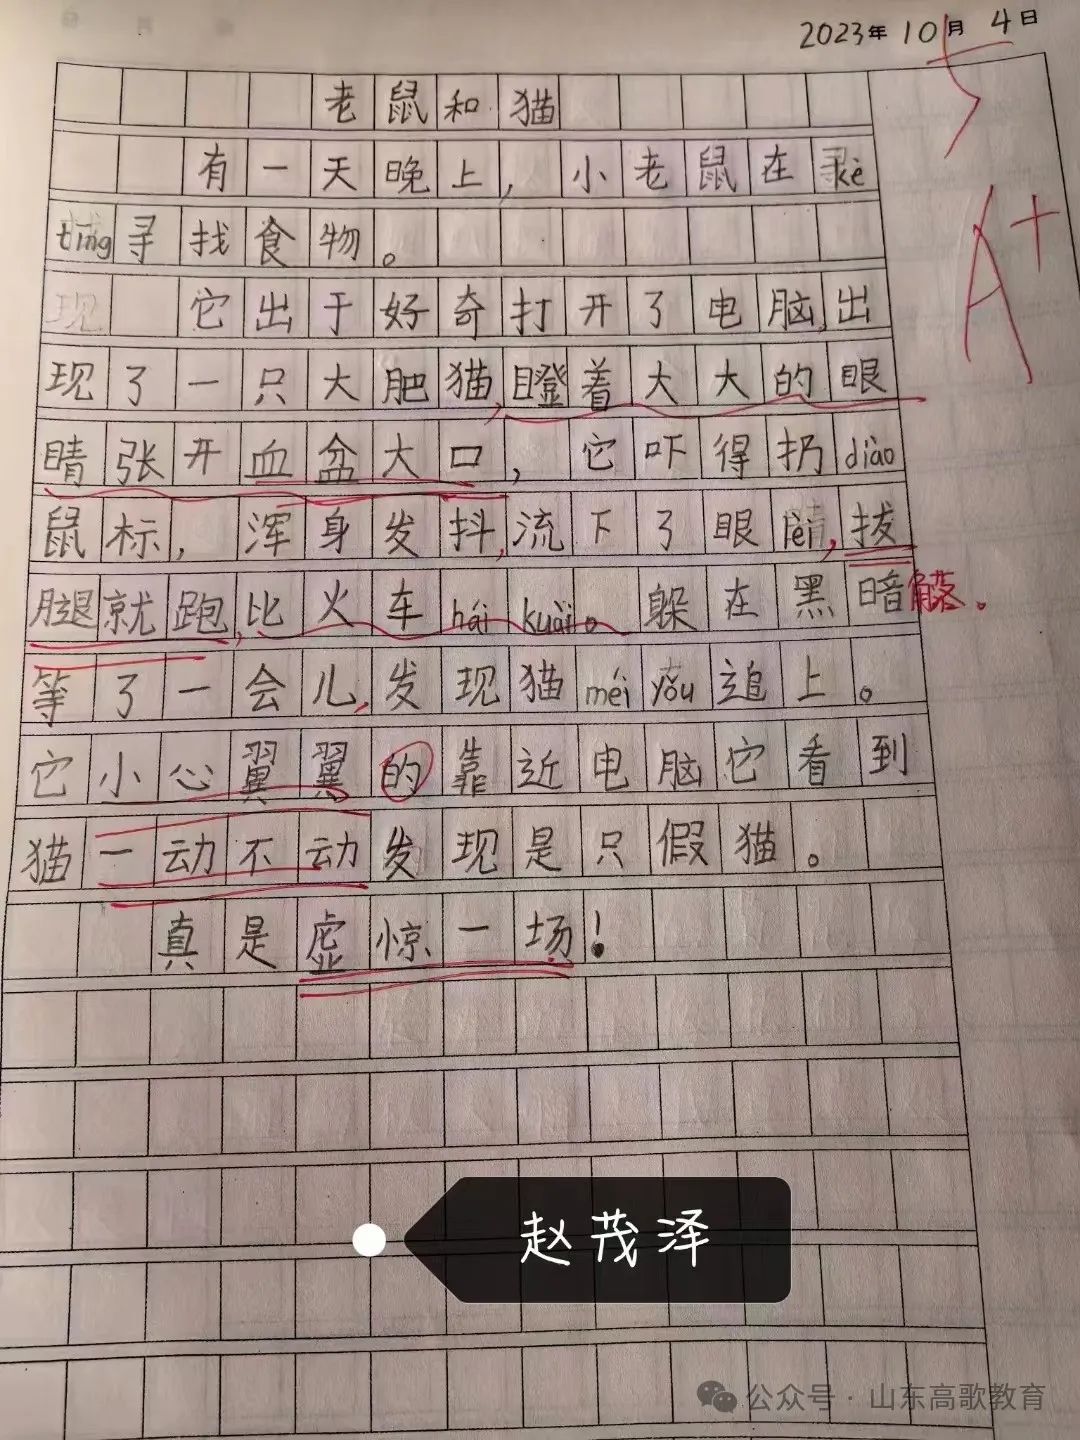 2023年10月4日
老鼠和猫
A+
有一天晚上，小老鼠在kè
tīng寻找食物。
它出于好奇打开了电脑,出
现了一只大肥猫,瞪着大大的眼
睛张开血盆大口，它吓得扔diào
鼠标，浑身发抖,流下了眼lèi,拔
腿就跑,比火车hái kuài。躲在黑暗角落。
等了一会儿,发现猫méi yǒu追上。
它小心翼翼的靠近电脑它看到
猫一动不动发现是只假猫。
真是虚惊一场!
赵茂泽
公众号·山东高歌教育